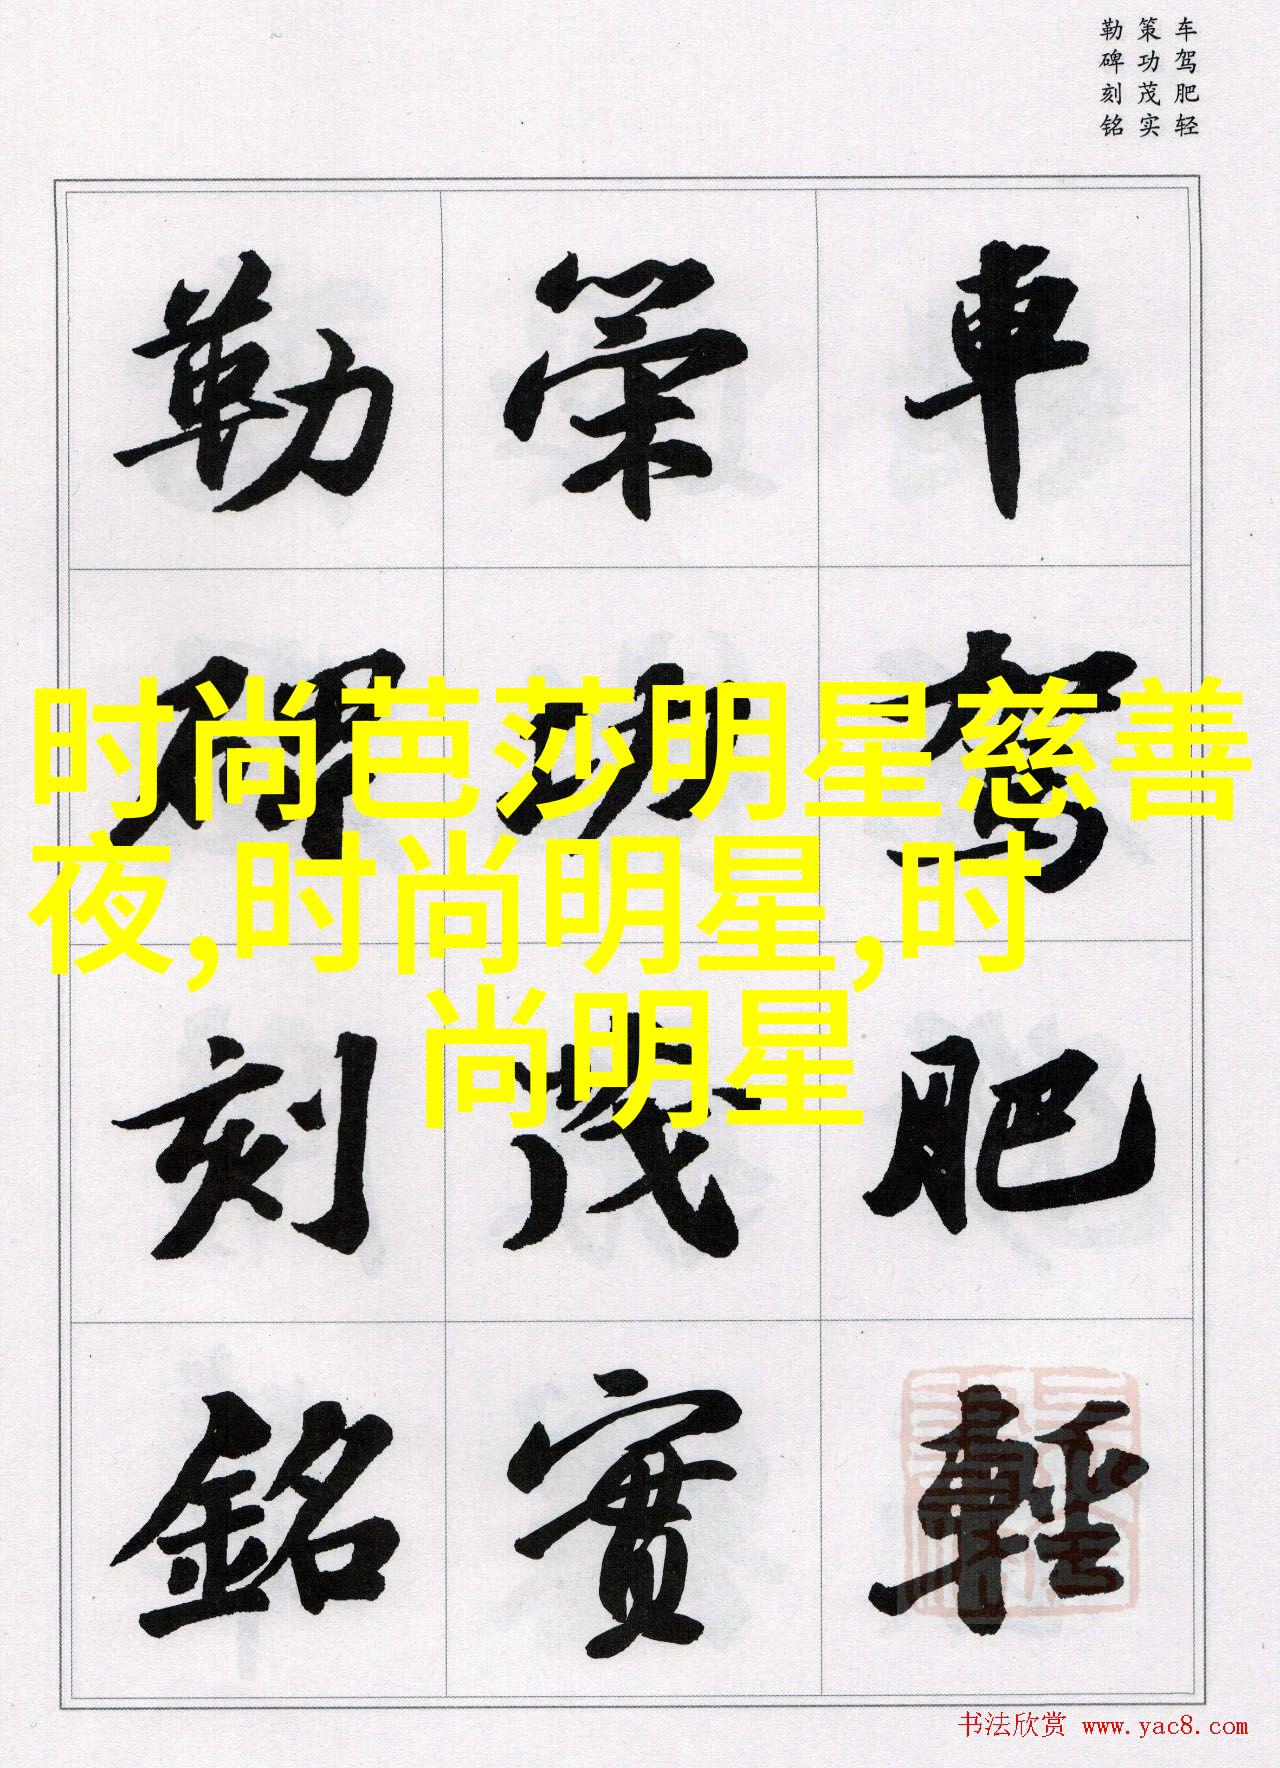 车驾肥轻
策功茂实
勒碑刻铭
車駕肥輕
策功茂實
勒碑刻銘
时尚芭莎明星慈善
夜,时尚明星,时
尚明星
书法欣赏 www.yac8.com